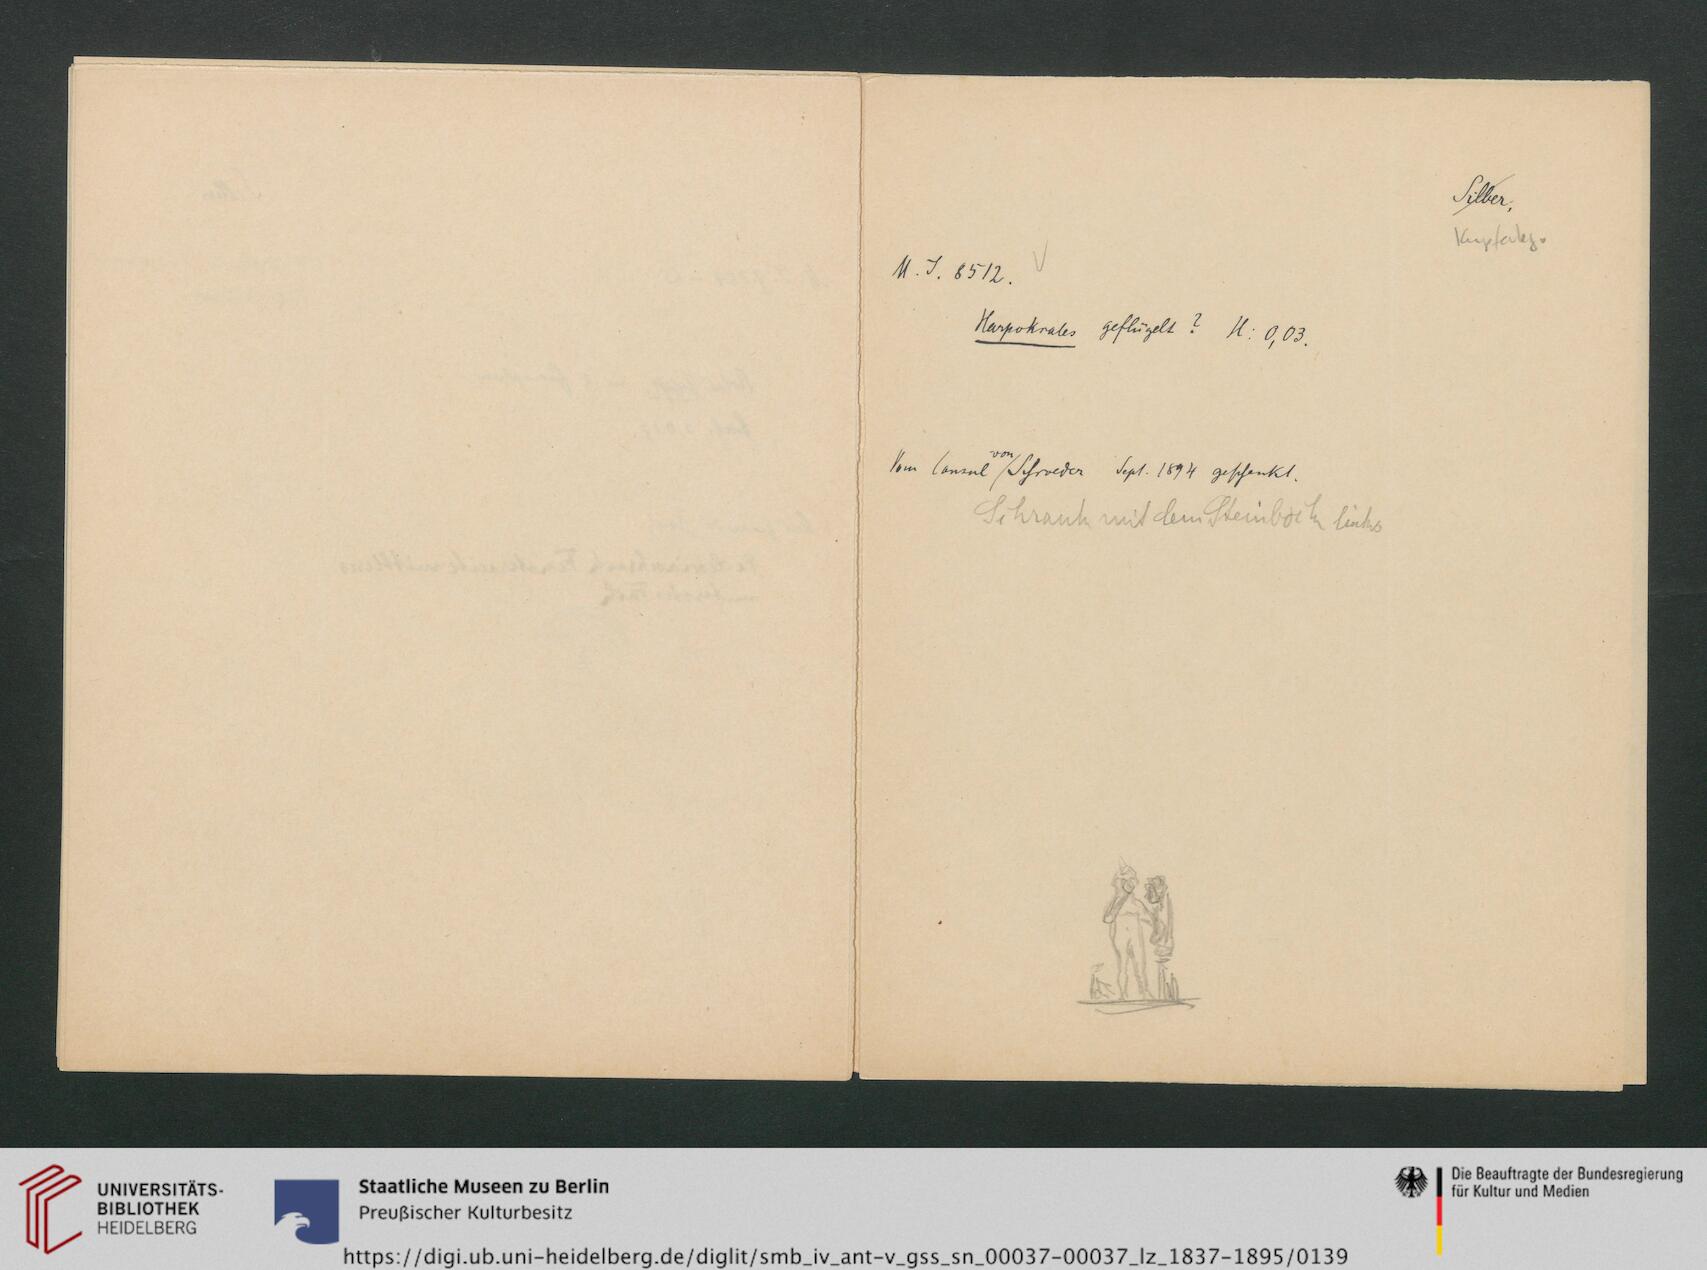 Silber,
Kupferlegg.
M. I. 8512. √
Harpokrates geflügelt? H: 0,03.
Vom Consul von Schroeder Sept. 1894 geschenkt.
Schrank mit dem Steinbock links
UNIVERSITÄTS-
BIBLIOTHEK
HEIDELBERG
Staatliche Museen zu Berlin
Preußischer Kulturbesitz
Die Beauftragte der Bundesregierung
für Kultur und Medien
https://digi.ub.uni-heidelberg.de/diglit/smb_iv_ant-v_gss_sn_00037-00037_lz_1837-1895/0139